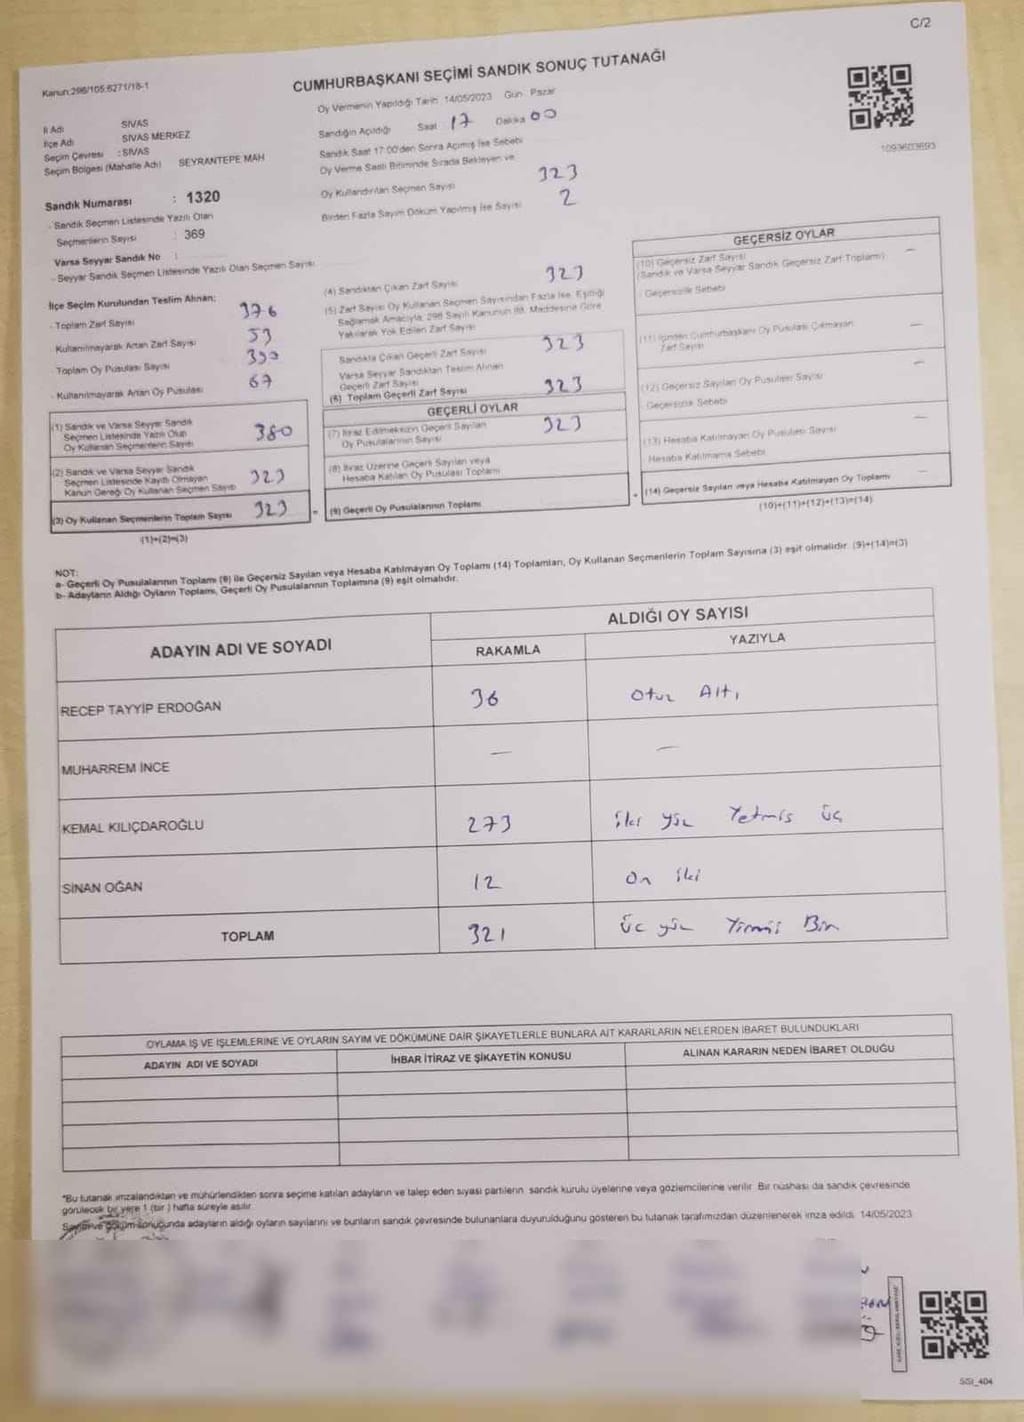 C/2
Kanun:298/105.6271/18-1
CUMHURBAŞKANI SEÇİMİ SANDIK SONUÇ TUTANAĞI
1093603693
İl Adı SİVAS
İlçe Adı SİVAS MERKEZ
Seçim Çevresi :SİVAS
Seçim Bölgesi (Mahalle Adı) SEYRANTEPE MAH
Sandık Numarası : 1320
- Sandık Seçmen Listesinde Yazılı Olan
Seçmenlerin Sayısı : 369
Varsa Seyyar Sandık No :
- Seyyar Sandık Seçmen Listesinde Yazılı Olan Seçmen Sayısı
Oy Vermenin Yapıldığı Tarih: 14/05/2023 Gün: Pazar
Sandığın Açıldığı Saat 17 Dakika 00
Sandık Saat 17:00'den Sonra Açılmış İse Sebebi
Oy Verme Saati Bitiminde Sırada Bekleyen ve
Oy Kullandırılan Seçmen Sayısı 323
Birden Fazla Sayım Döküm Yapılmış İse Sayısı 2
İlçe Seçim Kurulundan Teslim Alınan;
- Toplam Zarf Sayısı 376
- Kullanılmayarak Artan Zarf Sayısı 53
- Toplam Oy Pusulası Sayısı 390
- Kullanılmayarak Artan Oy Pusulası 67
(1) Sandık ve Varsa Seyyar Sandık
Seçmen Listesinde Yazılı Olup
Oy Kullanan Seçmenlerin Sayısı 380
(2) Sandık ve Varsa Seyyar Sandık
Seçmen Listesinde Kayıtlı Olmayan
Kanun Gereği Oy Kullanan Seçmen Sayısı 323
(3) Oy Kullanan Seçmenlerin Toplam Sayısı 323
(1)+(2)=(3)
(4) Sandıktan Çıkan Zarf Sayısı 323
(5) Zarf Sayısı Oy Kullanan Seçmen Sayısından Fazla İse, Eşitliği
Sağlamak Amacıyla, 298 Sayılı Kanunun 98. Maddesine Göre
Yakılarak Yok Edilen Zarf Sayısı
Sandıkta Çıkan Geçerli Zarf Sayısı 323
Varsa Seyyar Sandıktan Teslim Alınan
Geçerli Zarf Sayısı
(6) Toplam Geçerli Zarf Sayısı 323
GEÇERLİ OYLAR
(7) İtiraz Edilmeksizin Geçerli Sayılan
Oy Pusulalarının Sayısı 323
(8) İtiraz Üzerine Geçerli Sayılan veya
Hesaba Katılan Oy Pusulası Toplamı
= (9) Geçerli Oy Pusulalarının Toplamı
GEÇERSİZ OYLAR
(10) Geçersiz Zarf Sayısı —
(Sandık ve Varsa Seyyar Sandık Geçersiz Zarf Toplamı)
Geçersizlik Sebebi
(11) İçinden Cumhurbaşkanı Oy Pusulası Çıkmayan —
Zarf Sayısı
(12) Geçersiz Sayılan Oy Pusulası Sayısı —
Geçersizlik Sebebi
(13) Hesaba Katılmayan Oy Pusulası Sayısı —
Hesaba Katılmama Sebebi
+ (14) Geçersiz Sayılan veya Hesaba Katılmayan Oy Toplamı —
(10)+(11)+(12)+(13)=(14)
NOT:
a- Geçerli Oy Pusulalarının Toplamı (9) ile Geçersiz Sayılan veya Hesaba Katılmayan Oy Toplamı (14) Toplamları, Oy Kullanan Seçmenlerin Toplam Sayısına (3) eşit olmalıdır. (9)+(14)=(3)
b- Adayların Aldığı Oyların Toplamı, Geçerli Oy Pusulalarının Toplamına (9) eşit olmalıdır.
ADAYIN ADI VE SOYADI ALDIĞI OY SAYISI
RAKAMLA YAZIYLA
RECEP TAYYİP ERDOĞAN 36 Otuz Altı
MUHARREM İNCE — —
KEMAL KILIÇDAROĞLU 273 İki yüz Yetmis üç
SİNAN OĞAN 12 On iki
TOPLAM 321 üç yüz Yirmi Bir
OYLAMA İŞ VE İŞLEMLERİNE VE OYLARIN SAYIM VE DÖKÜMÜNE DAİR ŞİKAYETLERLE BUNLARA AİT KARARLARIN NELERDEN İBARET BULUNDUKLARI
ADAYIN ADI VE SOYADI İHBAR İTİRAZ VE ŞİKAYETİN KONUSU ALINAN KARARIN NEDEN İBARET OLDUĞU
*Bu tutanak imzalandıktan ve mühürlendikten sonra seçime katılan adayların ve talep eden siyasi partilerin sandık kurulu üyelerine veya gözlemcilerine verilir. Bir nüshası da sandık çevresinde
görülecek bir yere 1 (bir ) hafta süreyle asılır.
Sayım ve döküm sonucunda adayların aldığı oyların sayılarını ve bunların sandık çevresinde bulunanlara duyurulduğunu gösteren bu tutanak tarafımızdan düzenlenerek imza edildi. 14/05/2023
SISI_404